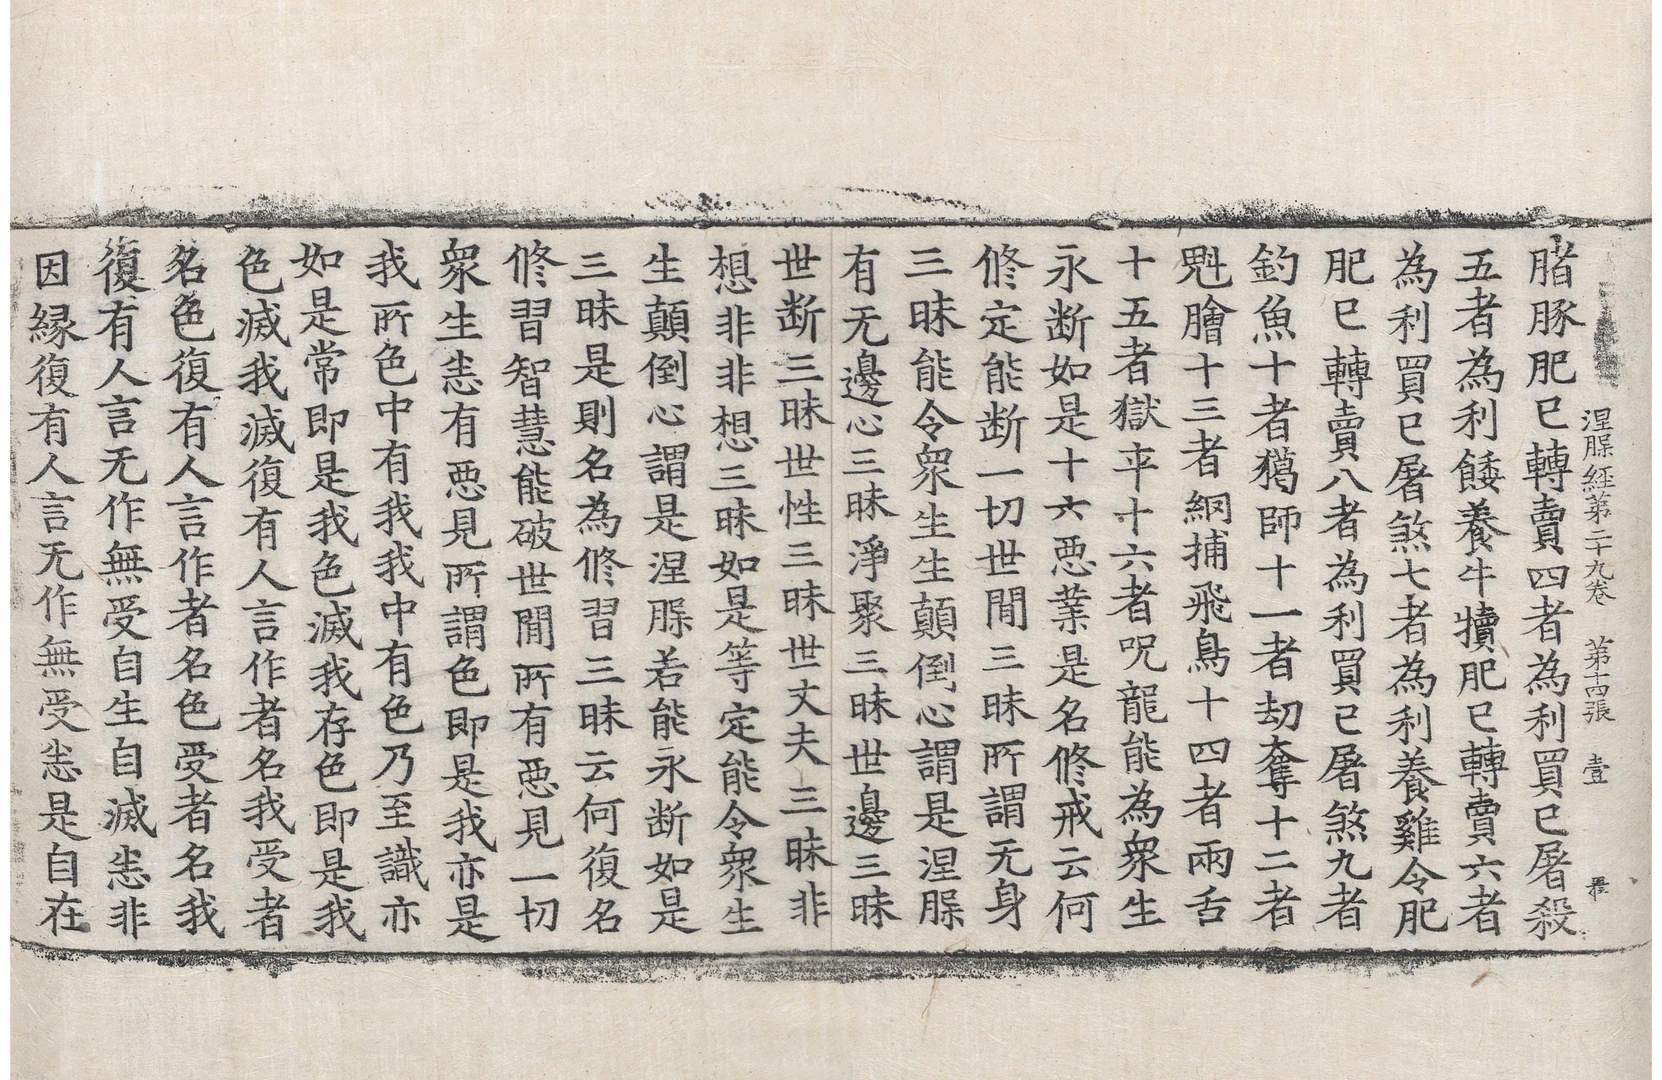 涅槃經第二十九卷 第十四張 壹
腤豚肥已轉賣四者為利買已屠殺
五者為利餧養牛犢肥已轉賣六者
為利買已屠煞七者為利養雞令肥
肥已轉賣八者為利買已屠煞九者
釣魚十者獦師十一者劫奪十二者
魁膾十三者網捕飛鳥十四者兩舌
十五者獄卒十六者呪龍能為衆生
永断如是十六惡業是名修戒云何
修定能断一切世間三昧所謂无身
三昧能令衆生生顛倒心謂是涅槃
有无邊心三昧淨聚三昧世邊三昧
世断三昧世性三昧世丈夫三昧非
想非非想三昧如是等定能令衆生
生顛倒心謂是涅槃若能永断如是
三昧是則名為修習三昧云何復名
修習智慧能破世間所有惡見一切
衆生悉有惡見所謂色即是我亦是
我所色中有我我中有色乃至識亦
如是常即是我色滅我存色即是我
色滅我滅復有人言作者名我受者
名色復有人言作者名色受者名我
復有人言无作無受自生自滅悉非
因縁復有人言无作無受悉是自在